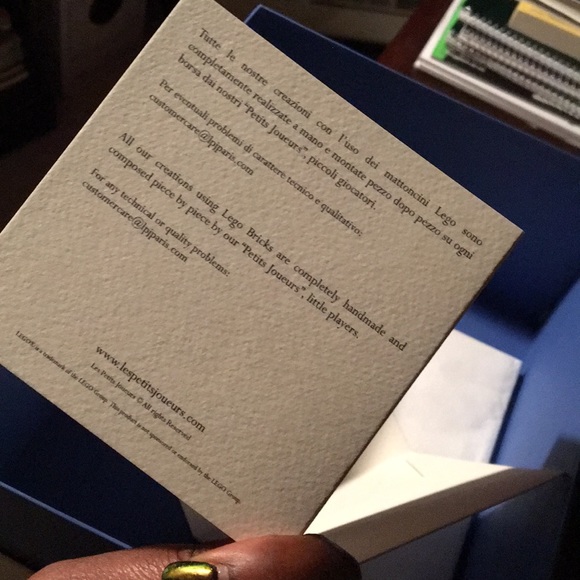 Tutte le nostre creazioni con l'uso dei mattoncini Lego sono
completamente realizzate a mano e montate pezzo dopo pezzo su ogni
borsa dai nostri "Petits Joueurs", piccoli giocatori.
Per eventuali problemi di carattere tecnico e qualitativo:
customercare@lpjparis.com
All our creations using Lego Bricks are completely handmade and
composed piece by piece by our "Petits Joueurs", little players.
For any technical or quality problems:
customercare@lpjparis.com
www.lespetitsjoueurs.com
Les Petits Joueurs © All rights Reserved
LEGO® is a trademark of the LEGO Group. This product is not sponsored or endorsed by the LEGO Group.